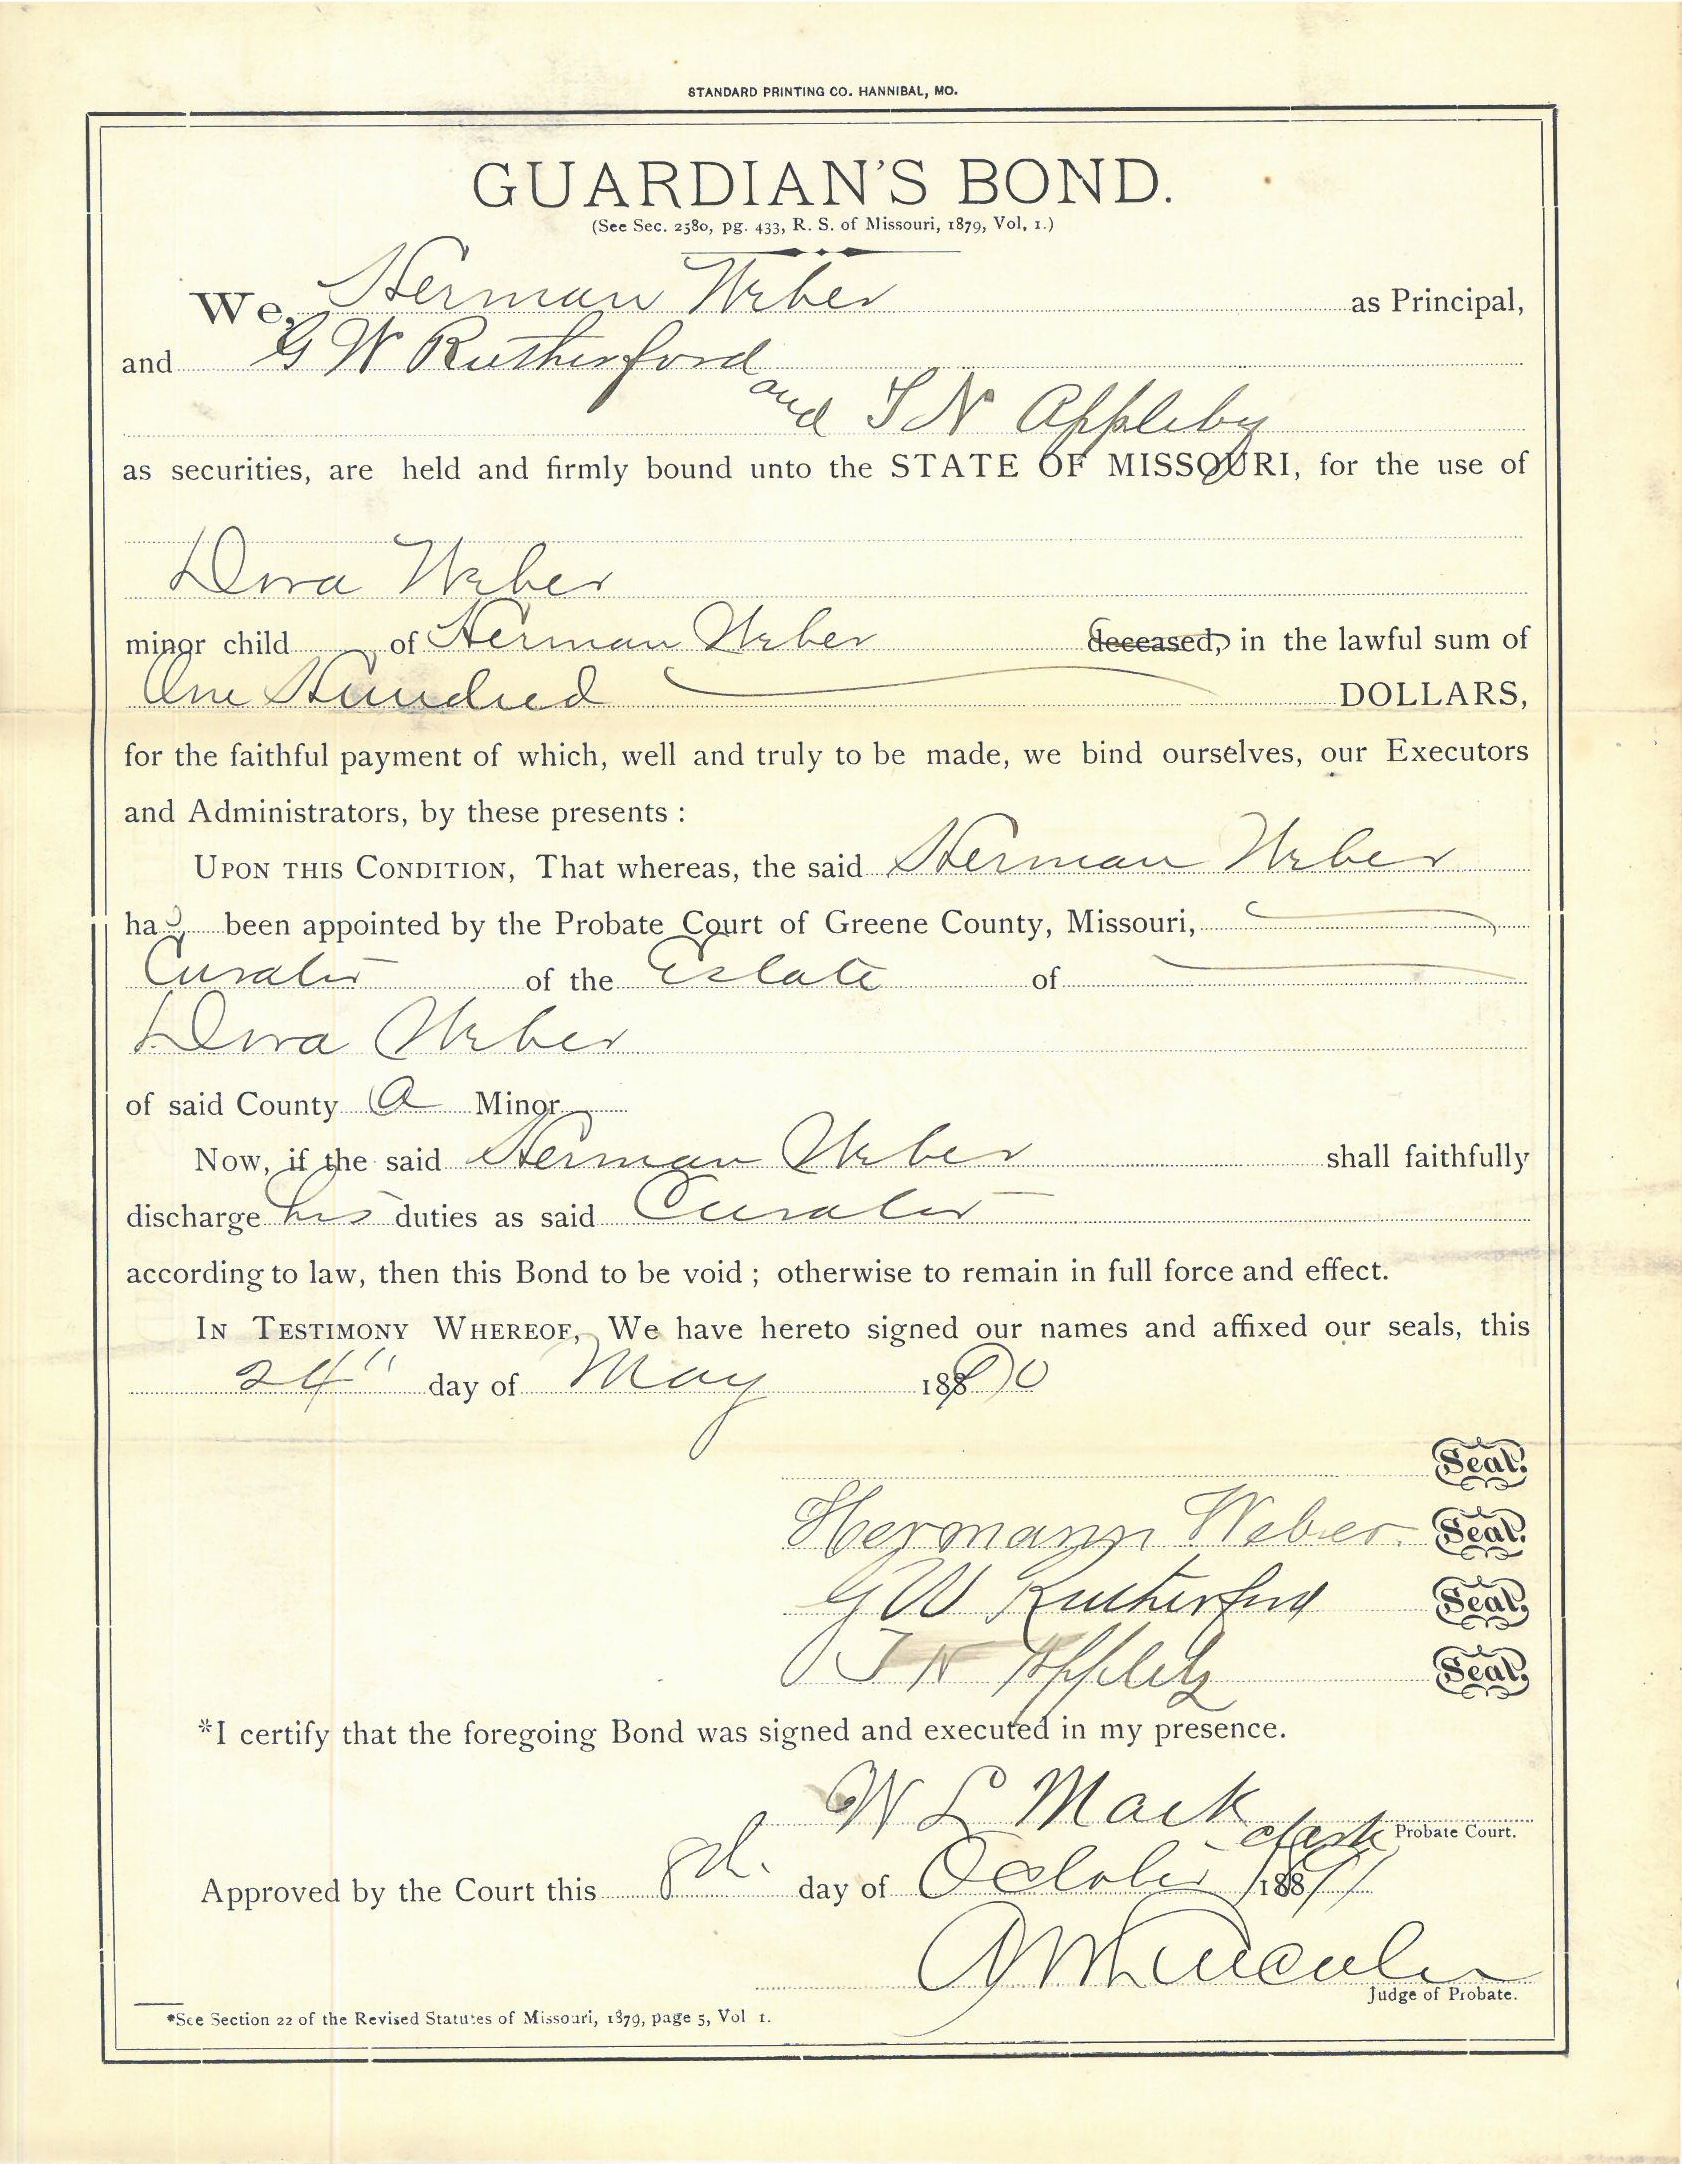 STANDARD PRINTING CO. HANNIBAL, MO.
GUARDIAN'S BOND.
(See Sec. 2580, pg. 433, R. S. of Missouri, 1879, Vol, 1.)
We, Herman Weber as Principal,
and G W Rutherford
and T N Appleby
as securities, are held and firmly bound unto the STATE OF MISSOURI, for the use of
Dora Weber
minor child of Herman Weber deceased, in the lawful sum of
One Hundred DOLLARS,
for the faithful payment of which, well and truly to be made, we bind ourselves, our Executors
and Administrators, by these presents :
UPON THIS CONDITION, That whereas, the said Herman Weber
has been appointed by the Probate Court of Greene County, Missouri,
Curator of the Estate of
Dora Weber
of said County a Minor
Now, if the said Herman Weber shall faithfully
discharge his duties as said Curator
according to law, then this Bond to be void ; otherwise to remain in full force and effect.
IN TESTIMONY WHEREOF, We have hereto signed our names and affixed our seals, this
24" day of May 1890
Seal.
Hermann Weber. Seal.
G W Rutherford Seal.
T N Appleby Seal.
*I certify that the foregoing Bond was signed and executed in my presence.
W L Mack
clerk Probate Court.
Approved by the Court this day of October 1891
Judge of Probate.
*See Section 22 of the Revised Statutes of Missouri, 1879, page 5, Vol 1.